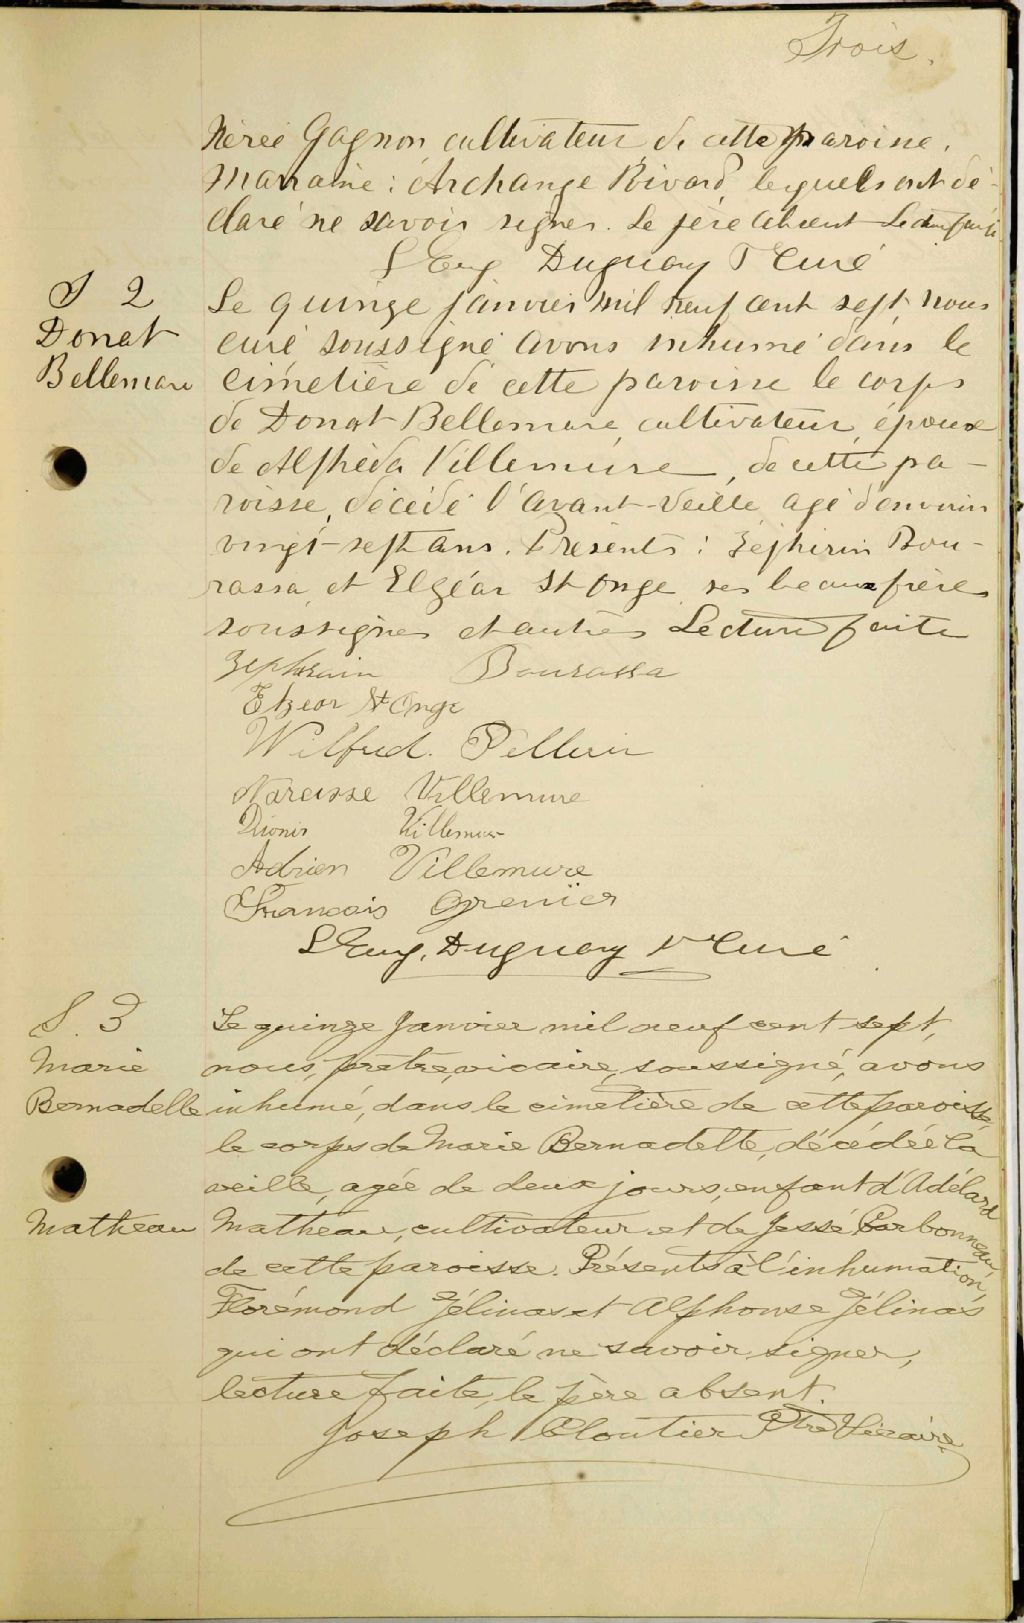 Trois.
Nérée Gagnon cultivateur de cette paroisse.
Marraine : Archange Rivard lesquels ont dé-
claré ne savoir signer. Le père absent Lecture faite
L Eug Duguay Ptre Curé
S 2
Donat
Bellemare
Le quinze janvier mil neuf cent sept, nous
curé soussigné avons inhumé dans le
cimetière de cette paroisse le corps
de Donat Bellemare cultivateur, époux
de Alphéda Villemure, de cette pa-
roisse, décédé l'avant-veille agé d'environ
vingt-sept ans. Présents : Zéphirin Bou-
rassa et Elzéar St Onge ses beaux frères
soussignés et autres Lecture faite
Zephirain Bourassa
Elzear St Onge
Wilfrid. Pellerin
Narcisse Villemure
Dionis Villemure
Adrien Villemure
François Grenier
L Eug. Duguay Ptre Curé
S. 3
Marie
Bernadette
Matheau
Le quinze Janvier mil neuf cent sept,
nous, prêtre, vicaire, soussigné, avons
inhumé, dans le cimetière de cette paroisse,
le corps de Marie Bernadette, décédée la
veille, agée de deux jours, enfant d'Adélard
Matheau, cultivateur et de Jessé Carbonneau,
de cette paroisse. Présents à l'inhumation,
Florémond Gélinas et Alphonse Gélinas
qui ont déclaré ne savoir signer,
lecture faite, le père absent.
Joseph Cloutier Ptre Vicaire